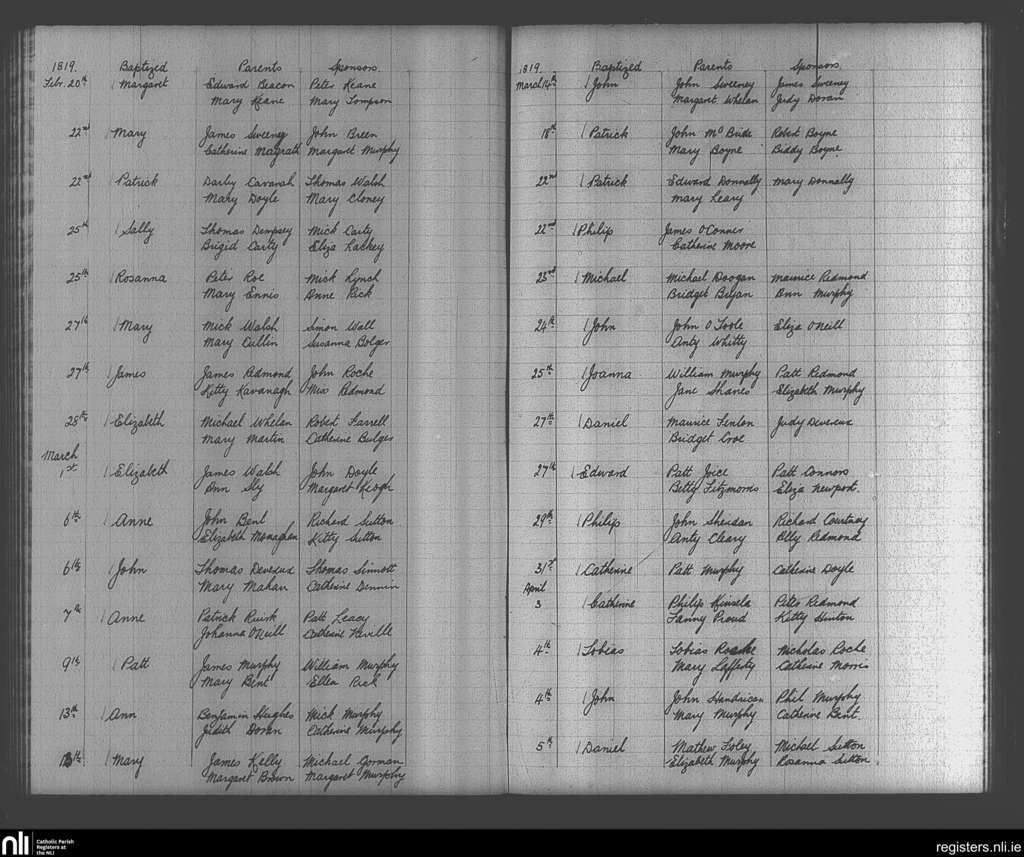 1819. Baptized Parents Sponsors.
Febr. 20th 1 Margaret Edward Beacon Peter Keane
Mary Keane Mary Tompson
22nd 1 Mary James Sweeney John Breen
Catherine Magrath Margaret Murphy
22nd 1 Patrick Darby Cavanah Thomas Walsh
Mary Doyle Mary Cloney
25th 1 Sally Thomas Dempsey Mick Carty
Brigid Carty Eliza Lackey
25th 1 Rosanna Peter Roe Mick Lynch
Mary Ennis Anne Rick
27th 1 Mary Mick Walsh Simon Wall
Mary Cullin Susanna Bolger
27th 1 James James Redmond John Roche
Kitty Kavanagh Miss Redmond
28th 1 Elizabeth Michael Whelan Robert Farrell
Mary Martin Catherine Bulger
March
1st 1 Elizabeth James Walsh John Doyle
Ann Sly Margaret Keogh
6th 1 Anne John Bent Richard Sutton
Elizabeth Monaghan Kitty Sutton
6th 1 John Thomas Devereux Thomas Sinnott
Mary Mahan Catherine Dinnin
7th 1 Anne Patrick Ruisk Patt Leacy
Johanna O'Neill Catherine Neville
9th 1 Patt James Murphy William Murphy
Mary Bent Ellen Rick
13th 1 Ann Benjamin Hughes Mick Murphy
Judith Doran Catherine Murphy
1 Mary James Kelly Michael Gorman
Margaret Brown Margaret Murphy
1819. Baptized Parents Sponsors
March 14th 1 John John Sweeney James Sweney
Margaret Whelan Judy Doran
18th 1 Patrick John McBride Robert Boyne
Mary Boyne Biddy Boyne
22nd 1 Patrick Edward Donnally Mary Donnally
Mary Leary
22nd 1 Philip James O'Conner
Catherine Moore
23rd 1 Michael Michael Doogan Maurice Redmond
Bridget Bryan Ann Murphy
24th 1 John John O'Toole Eliza O'Neill
Anty Whitty
25th 1 Joanna William Murphy Patt Redmond
Jane Shanes Elizabeth Murphy
27th 1 Daniel Maurice Fenlon Judy Devereux
Bridget Croe
27th 1 Edward Patt Joice Patt Connors
Betty Fitzmorris Eliza Newport.
29th 1 Philip John Sheridan Richard Courtnay
Anty Cleary Elly Redmond
31st 1 Catherine Patt Murphy Catherine Doyle
April
3 1 Catherine Philip Kinsela Peter Redmond
Fanny Proud Kitty Hinton
4th 1 Tobias Tobias Roche Nicholas Roche
Mary Lafferty Catherine Morris
4th 1 John John Handrican Phil Murphy
Mary Murphy Catherine Bent.
5th 1 Daniel Mathew Foley Michael Sutton
Elizabeth Murphy Rosanna Sutton
nli Catholic Parish
Registers at
the NLI
registers.nli.ie